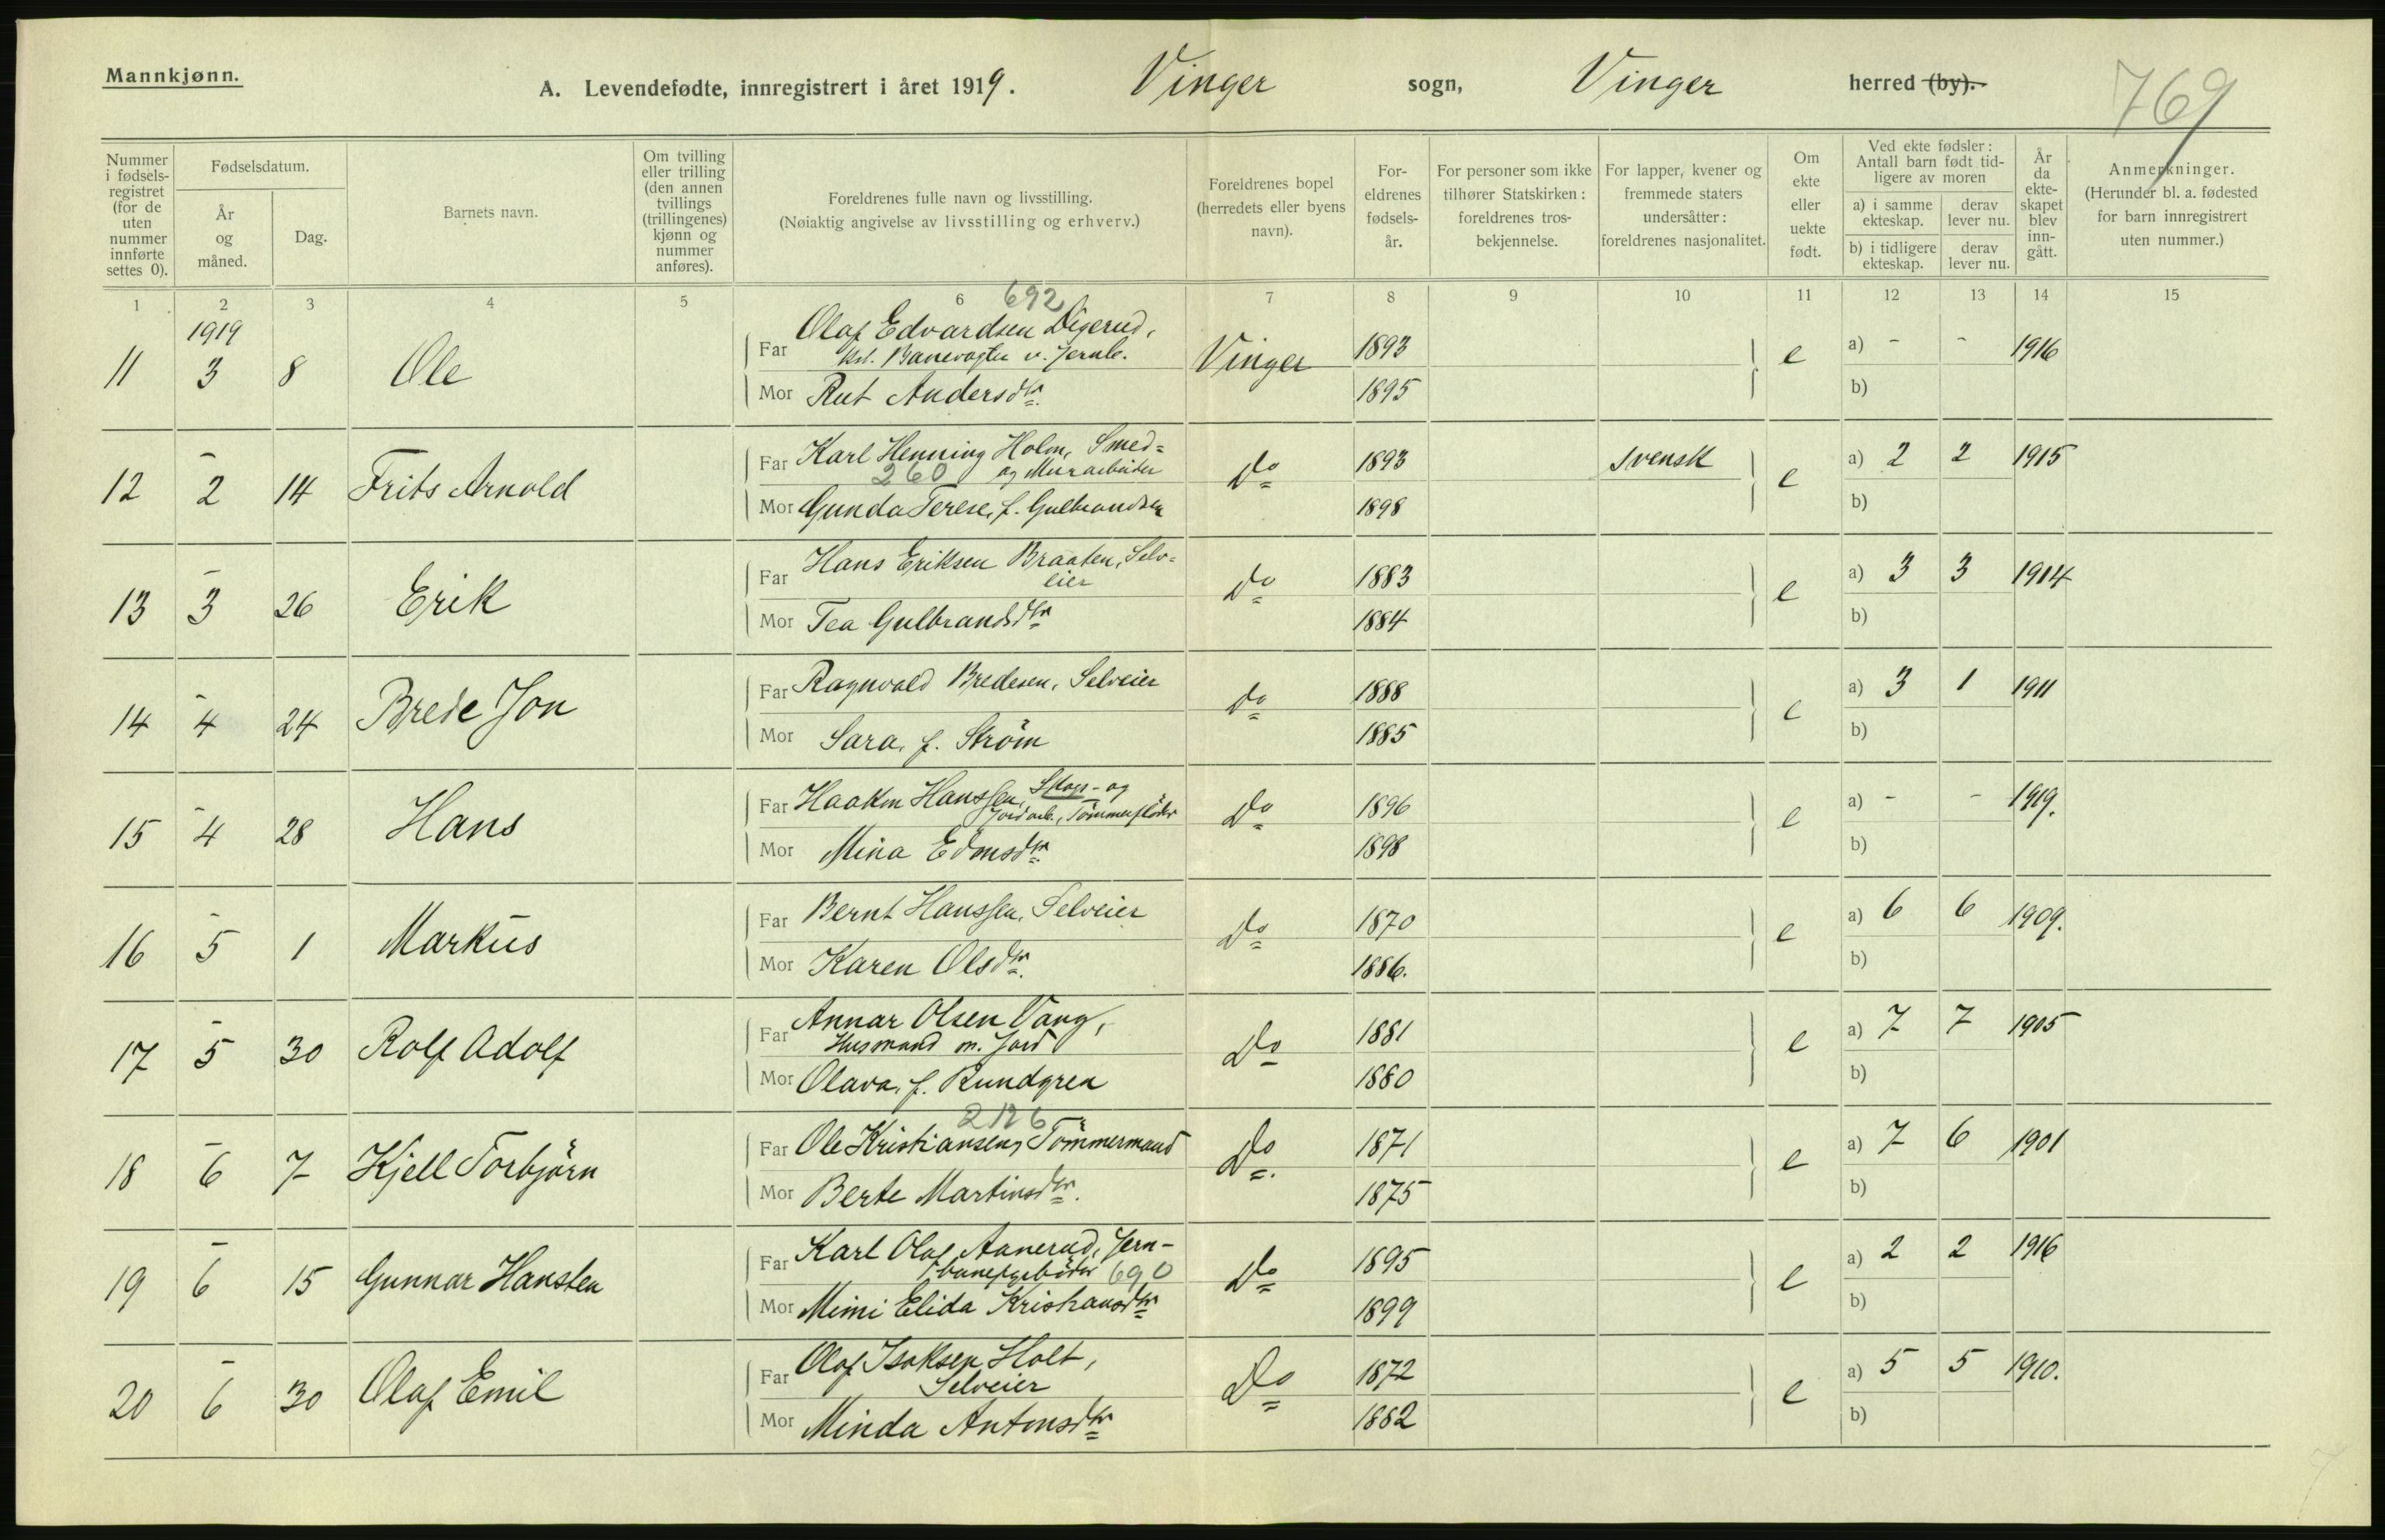 Mannkjønn.
A. Levendefødte, innregistrert i året 1919. Vinger sogn, Vinger herred (by).
769
Nummer i fødselsregistret (for de uten nummer innførte settes 0).
Fødselsdatum.
År og måned.
Dag.
Barnets navn.
Om tvilling eller trilling (den annen tvillings (trillingenes) kjønn og nummer anføres).
Foreldrenes fulle navn og livsstilling.
(Nøiaktig angivelse av livsstilling og erhverv.)
Foreldrenes bopel (herredets eller byens navn).
Foreldrenes fødselsår.
For personer som ikke tilhører Statskirken: foreldrenes trosbekjennelse.
For lapper, kvener og fremmede staters undersåtter: foreldrenes nasjonalitet.
Om ekte eller uekte født.
Ved ekte fødsler: Antall barn født tidligere av moren
a) i samme ekteskap. derav lever nu.
b) i tidligere ekteskap. derav lever nu.
År da ekteskapet blev inngått.
Anmerkninger.
(Herunder bl. a. fødested for barn innregistrert uten nummer.)
1 2 3 4 5 6 7 8 9 10 11 12 13 14 15
692
1919
Far Olaf Edvardsen Digerud,
Banevogter v. Jernb. 1893 a) - - 1916
11 3 8 Ole Vinger e
Mor Rut Andersdtr. 1895 b)
- Far Karl Henning Holm, Smed=
260 og Murarbeider 1893 svensk a) 2 2 1915
12 2 14 Frits Arnold Do e
Mor Gunda Terese, f. Gulbrandsen 1898 b)
- Far Hans Eriksen Braaten, Selv=
eier 1883 a) 3 3 1914
13 3 26 Erik Do e
Mor Tea Gulbrandsdtr 1884 b)
- Far Ragnvald Bredesen, Selveier 1888 a) 3 1 1911
14 4 24 Brede Jon Do e
Mor Sara, f. Ström 1885 b)
- Far Haakon Hanssen, Skogs- og
Jordarb., Tömmerfløder 1896 a) - - 1919.
15 4 28 Hans Do e
Mor Mina Edmsdtr 1898 b)
- Far Bernt Hanssen, Selveier 1870 a) 6 6 1909.
16 5 1 Markus Do e
Mor Karen Olsdtr. 1886. b)
- Far Annar Olsen Vang,
Husmand m. Jord 1881 a) 7 7 1905
17 5 30 Rolf Adolf Do e
Mor Olava, f. Rundgren 1880 b)
2126
- Far Ole Kristiansen, Tömmermand 1871 a) 7 6 1901
18 6 7 Kjell Torbjörn Do. e
Mor Berte Martinsdtr. 1875 b)
- Far Karl Olaf Aanerud, Jern-
banearbeider 690 1895 a) 2 2 1916
19 6 15 Gunnar Hansten Do e
Mor Mimi Elida Kristiansdtr 1899 b)
- Far Olaf Isaksen Holt,
Selveier 1872 a) 5 5 1910.
20 6 30 Olaf Emil Do e
Mor Minda Antonsdtr 1882 b)